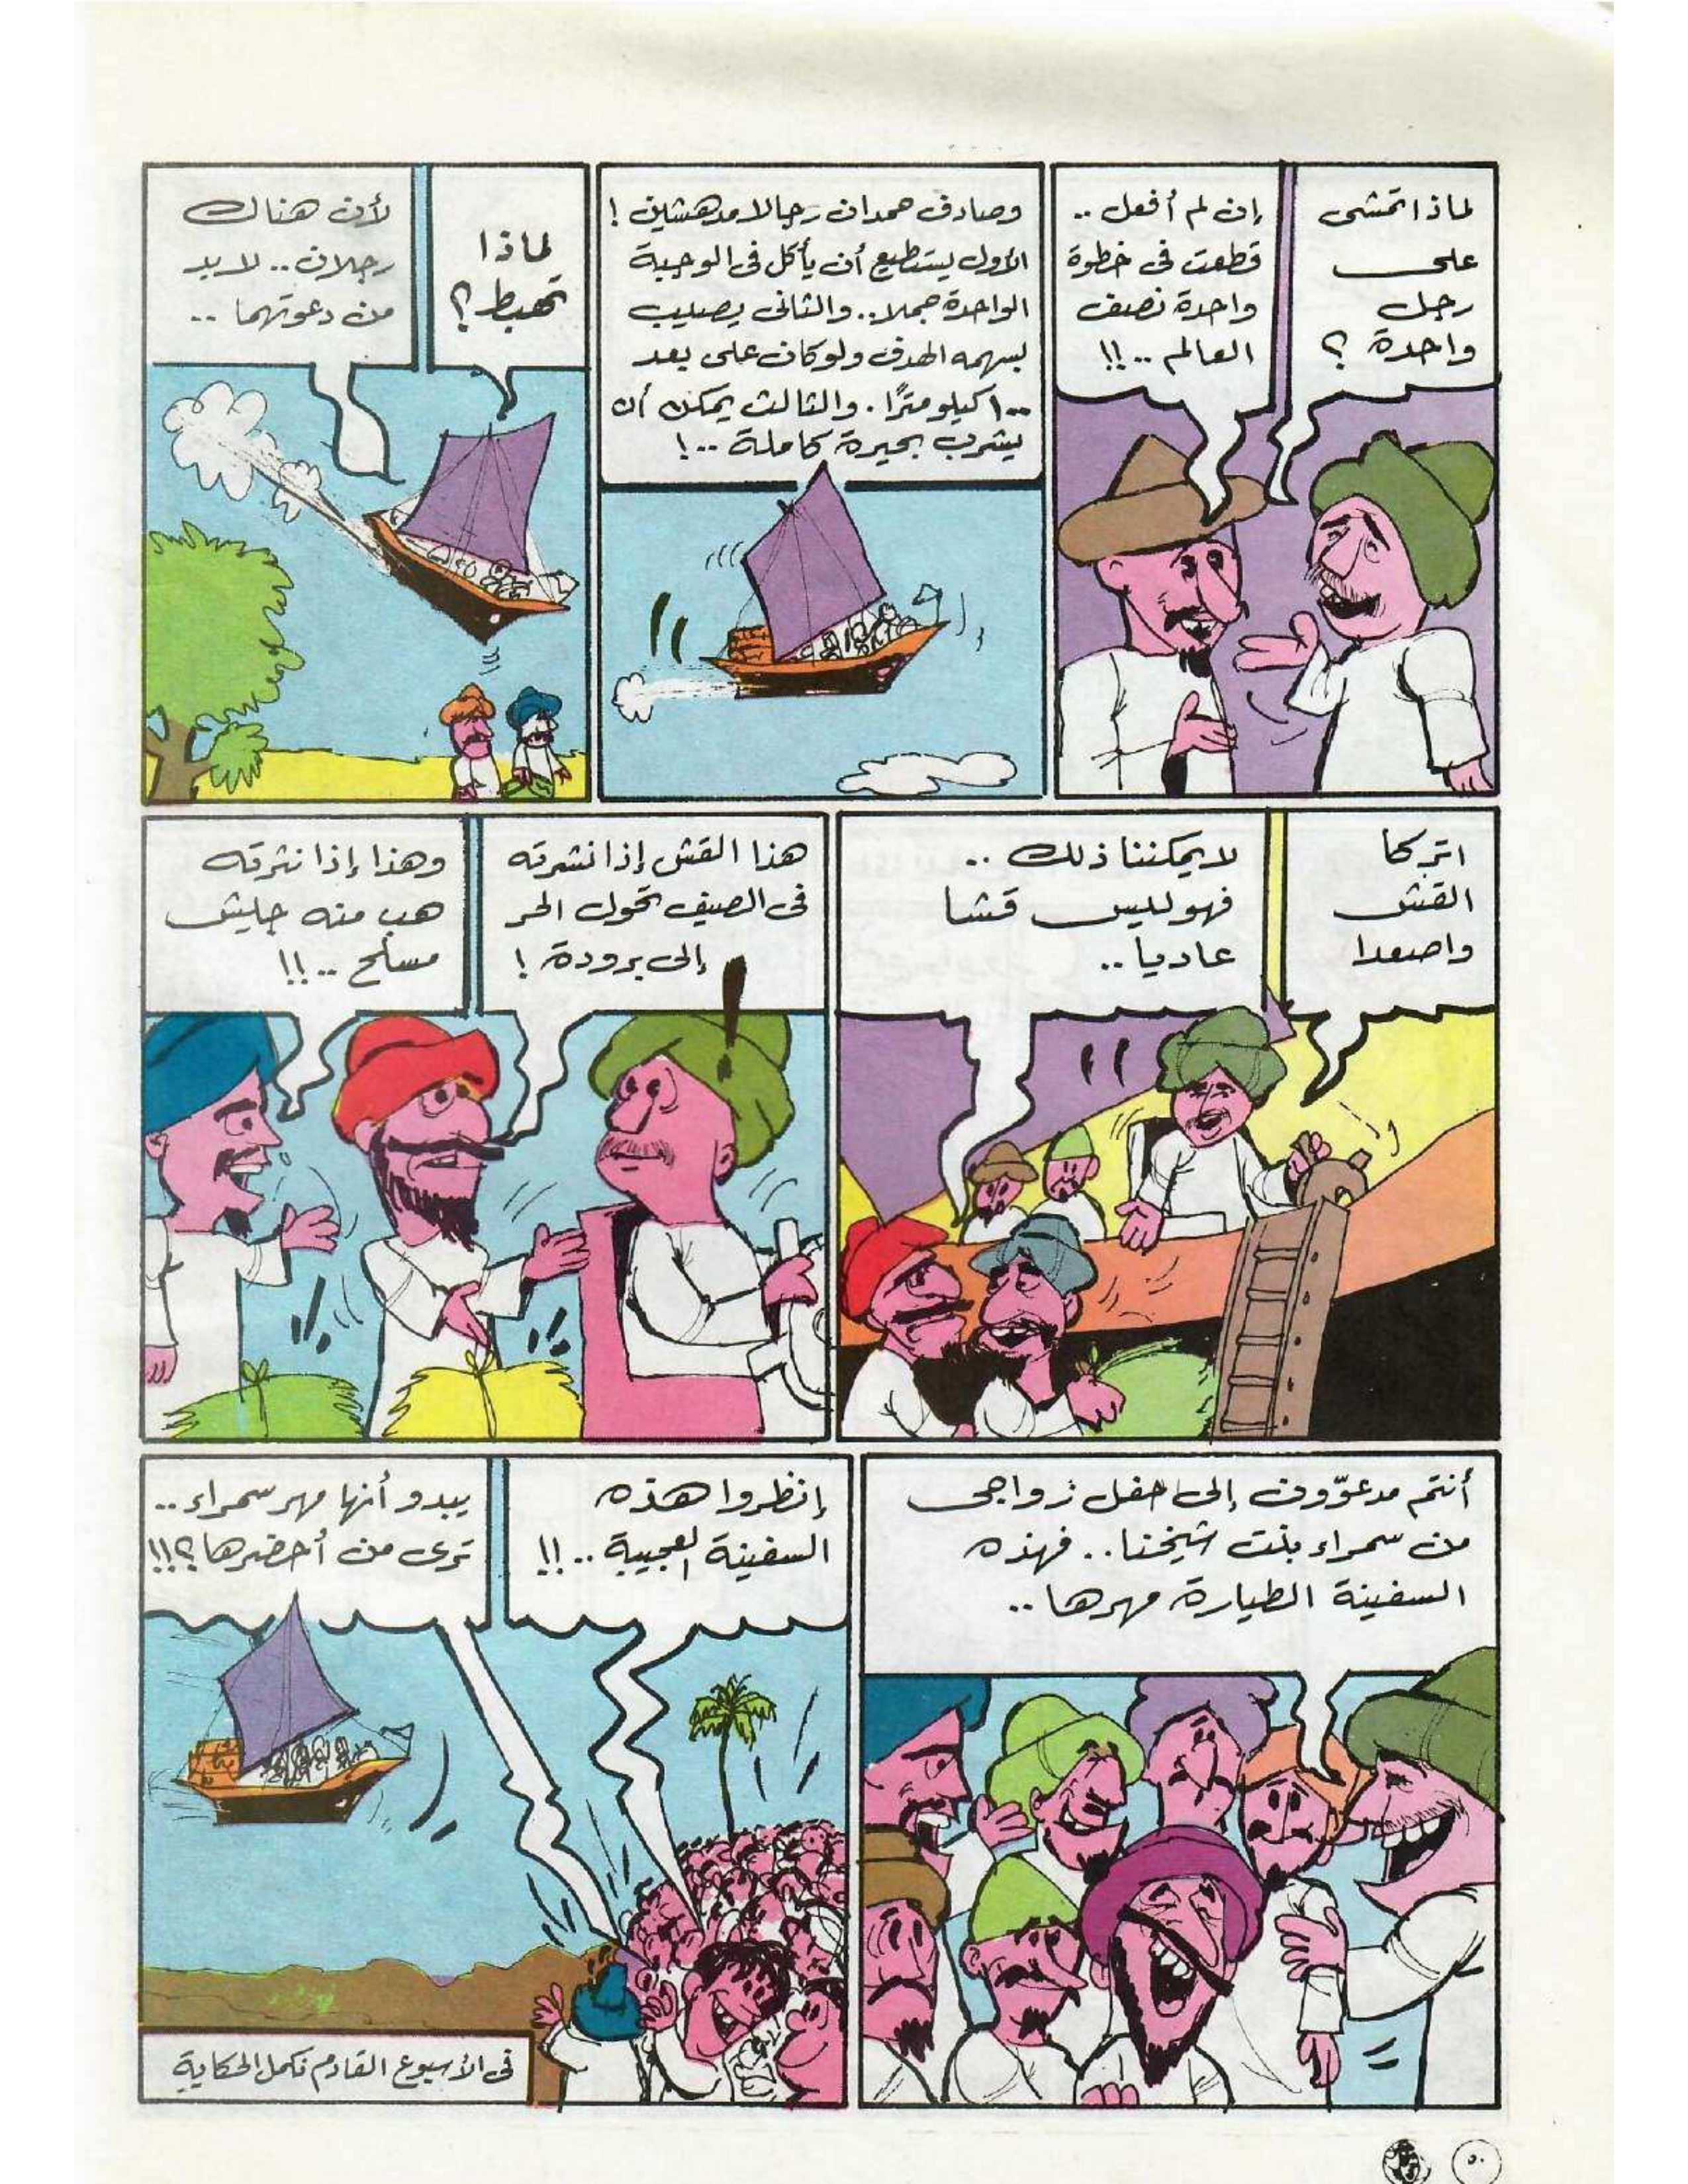 لماذا تمشى
على
رجل
واحدة ؟
إن لم أفعل ..
قطعت فى خطوة
واحدة نصف
العالم ..!!
وصادف حمدان رجالا مدهشين !
الأول يستطيع أن يأكل فى الوجبة
الواحدة جملا .. والثانى يصيب
بسهمه الهدف ولو كان على بعد
١٠٠ كيلو مترًا . والثالث يمكن أن
يشرب بحيرة كاملة ..!
لماذا
تهبط ؟
لأن هناك
رجلان .. لابد
من دعوتهما ..
اتركا
القش
واصعدا
لا يمكننا ذلك ..
فهو ليس قشا
عاديا ..
هذا القش إذا نشرته
فى الصيف تحول الحر
إلى برودة !
وهذا إذا نثرته
هب منه جيش
مسلح ..!!
أنتم مدعوّون إلى حفل زواجى
من سمراء بنت شيخنا .. فهذه
السفينة الطيارة مهرها ..
إنظروا هذه
السفينة العجيبة ..!!
يبدو أنها مهر سمراء ..
ترى من أحضرها ؟!!
فى الأسبوع القادم نكمل الحكاية
٥٠